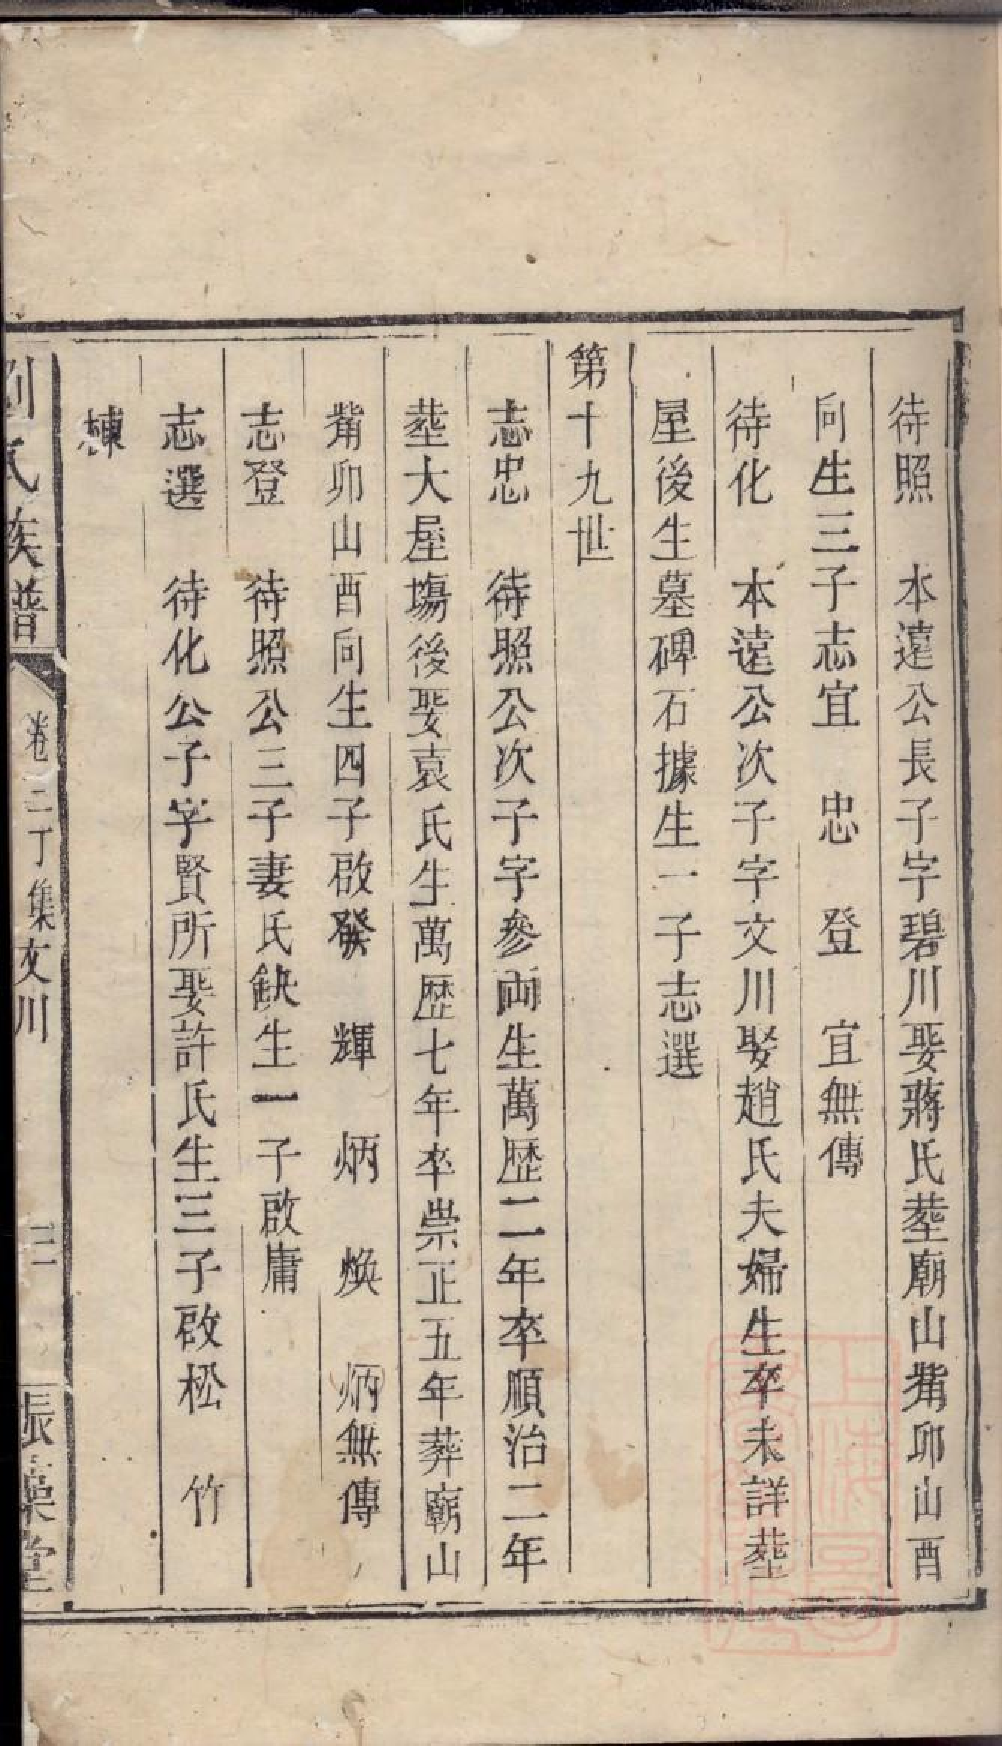 待照　本遠公長子字碧川娶蔣氏塟廟山觜卯山酉
向生三子志宜　忠　登　宜無傳
待化　本遠公次子字文川娶趙氏夫婦生卒未詳塟
屋後生墓碑石據生一子志選
第十九世
志忠　待照公次子字參両生萬歴二年卒順治二年
塟大屋塲後娶袁氏生萬歴七年卒崇正五年葬廟山
觜卯山酉向生四子啟發　輝　炳　煥　炳無傳
志登　待照公三子妻氏缺生一子啟庸
志選　待化公子字賢所娶許氏生三子啟松　竹
棟
劉氏族譜　卷二丁集文川　三　振藻堂
上海圖書館藏